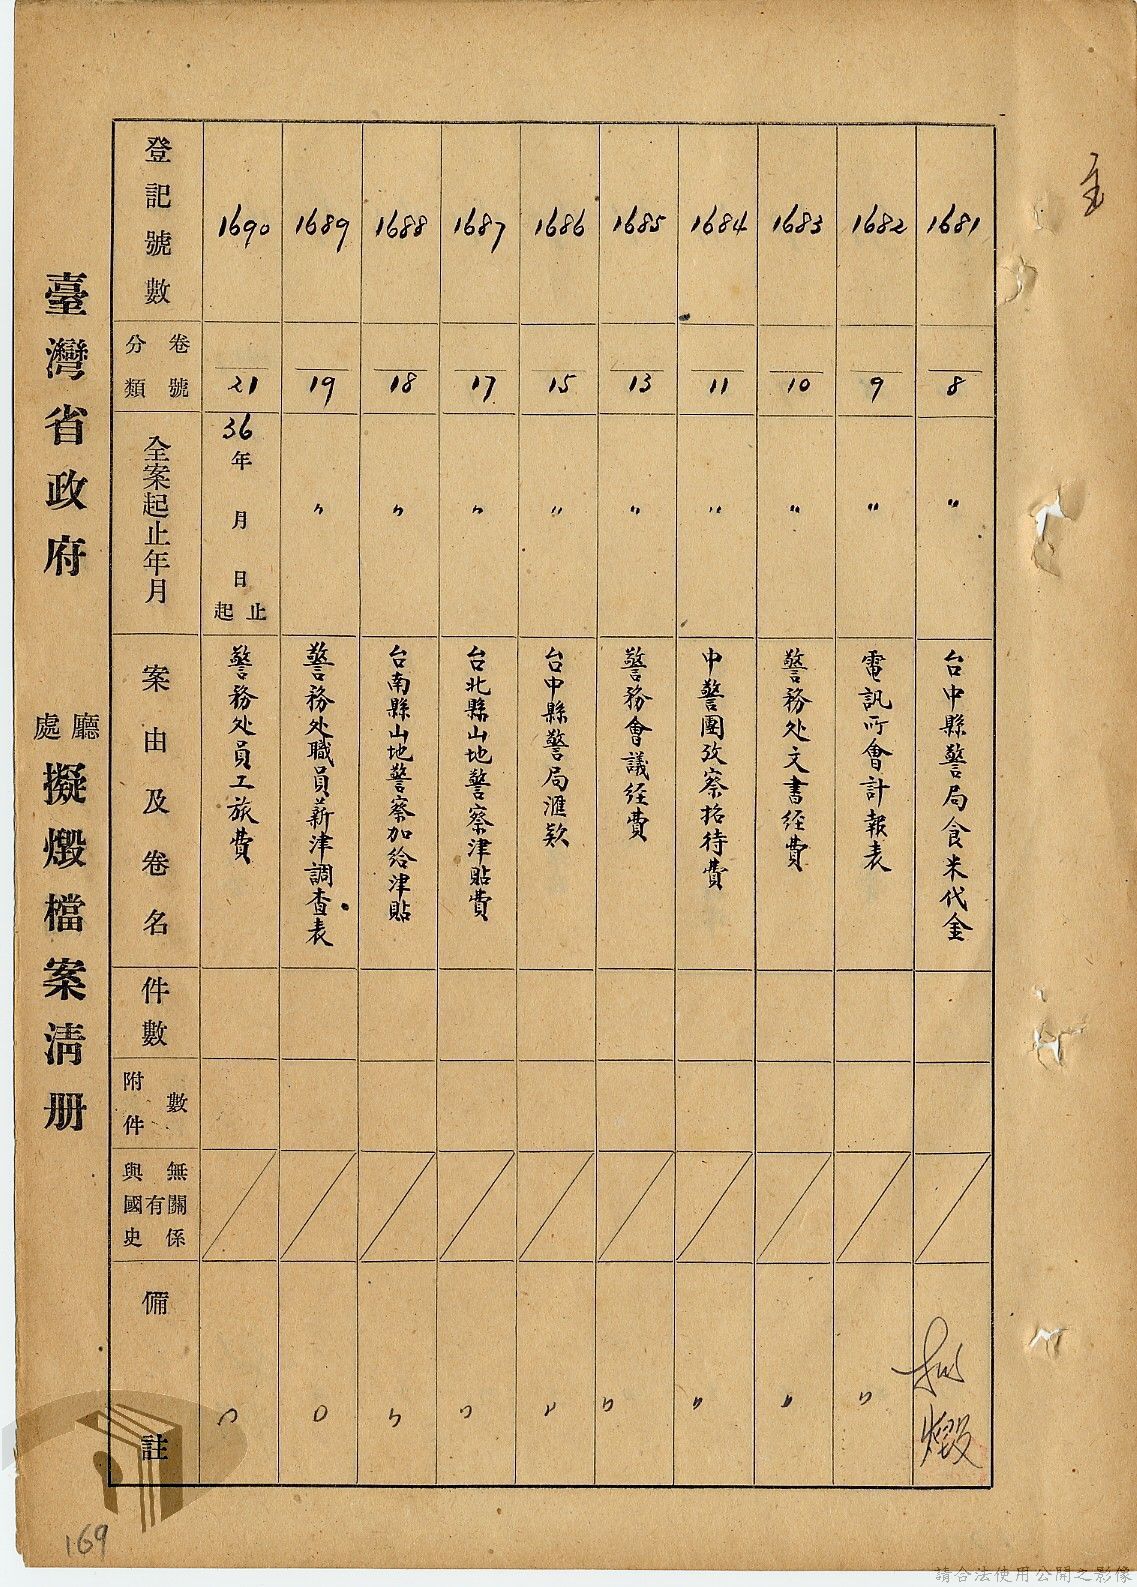 主
臺灣省政府
廳處
擬燬檔案清册
登記號數
分類
卷號
全案起止年月
案由及卷名
件數
附件數
與國史
有無關係
備註
1690
21
36年月日起止
警務处員工旅費
〃
1689
19
〃
警務处職員薪津調查表
〃
1688
18
〃
台南縣山地警察加給津貼
〃
1687
17
〃
台北縣山地警察津貼費
〃
1686
15
〃
台中縣警局滙欵
〃
1685
13
〃
警務會議経費
〃
1684
11
〃
中警團攷察招待費
〃
1683
10
〃
警務处文書経費
〃
1682
9
〃
電訊所會計報表
〃
1681
8
〃
台中縣警局食米代金
擬燬
169
請合法使用公開之影像